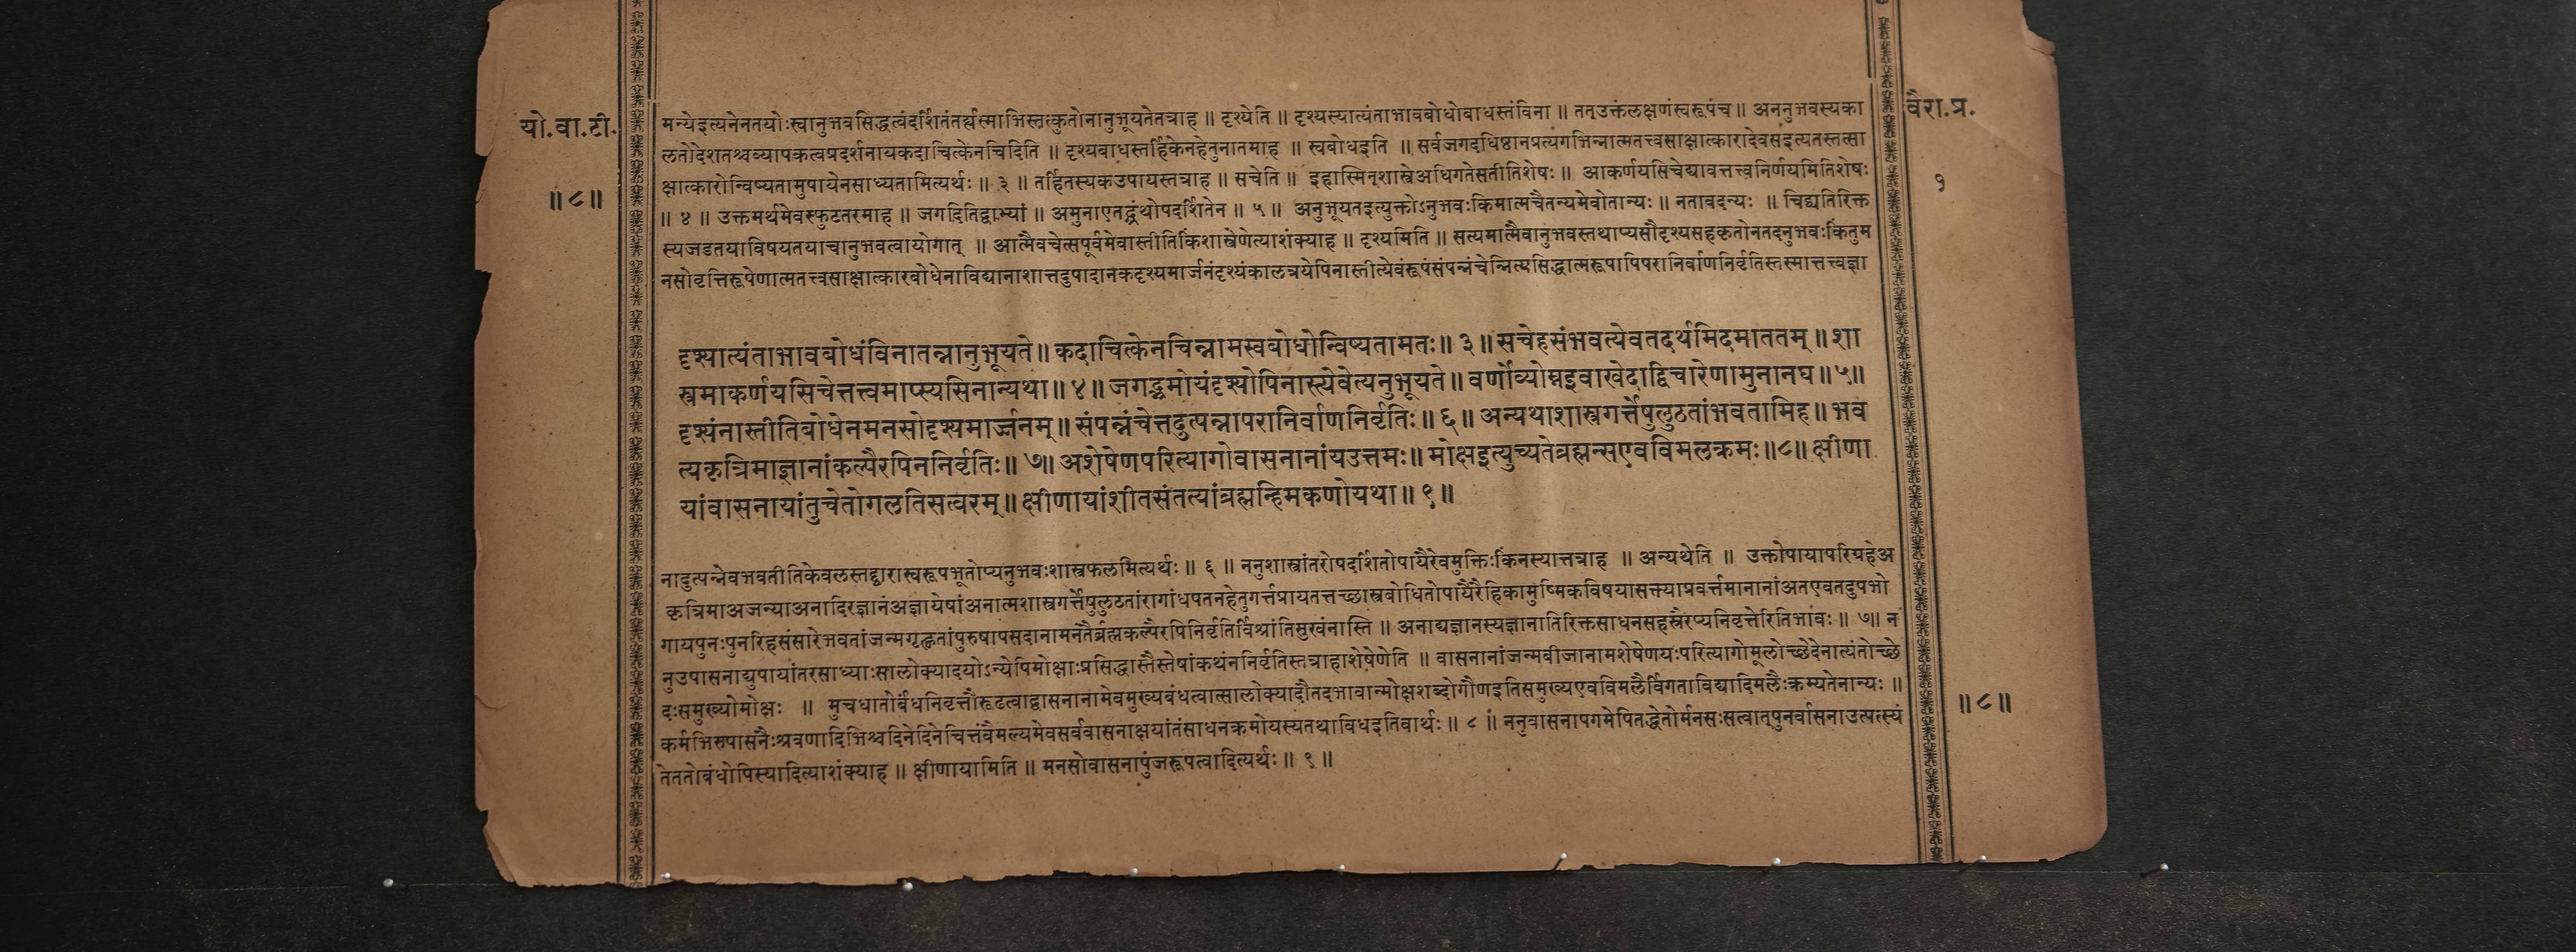 यो.वा.टी.
॥८॥
वैरा.प्र.
१
मन्येइत्यनेनतयोःस्वानुभवसिद्धत्वंदर्शितंतर्ह्यस्माभिस्तत्कुतोनानुभूयतेतत्राह ॥ दृश्येति ॥ दृश्यस्यात्यंताभावबोधोबाधस्तंविना ॥ तत्उक्तंलक्षणंस्वरूपंच ॥ अननुभवस्यका
लतोदेशतश्चव्यापकत्वप्रदर्शनायकदाचित्केनचिदिति ॥ दृश्यबाधस्तर्हिकेनहेतुनातमाह ॥ स्वबोधइति ॥ सर्वजगदधिष्ठानप्रत्यगभिन्नात्मतत्त्वसाक्षात्कारादेवसइत्यतस्तत्सा
क्षात्कारोन्विष्यतामुपायेनसाध्यतामित्यर्थः ॥ ३ ॥ तर्हितस्यकउपायस्तत्राह ॥ सचेति ॥ इहास्मिन्शास्त्रेअधिगतेसतीतिशेषः ॥ आकर्णयसिचेद्यावत्तत्त्वनिर्णयमितिशेषः
॥ ४ ॥ उक्तमर्थमेवस्फुटतरमाह ॥ जगदितिद्वाभ्यां ॥ अमुनाएतद्ग्रंथोपदर्शितेन ॥ ५ ॥ अनुभूयतइत्युक्तोऽनुभवःकिमात्मचैतन्यमेवोतान्यः ॥ नतावदन्यः ॥ चिद्व्यतिरिक्त
स्यजडतयाविषयतयाचानुभवत्वायोगात् ॥ आत्मैवचेत्सपूर्वमेवास्तीतिकिंशास्त्रेणेत्याशंक्याह ॥ दृश्यमिति ॥ सत्यमात्मैवानुभवस्तथाप्यसौदृश्यसहकृतोनतदनुभवःकिंतुम
नसोवृत्तिरूपेणात्मतत्त्वसाक्षात्कारबोधेनाविद्यानाशात्तदुपादानकदृश्यमार्जनंदृश्यंकालत्रयेपिनास्तीत्येवंरूपंसंपन्नंचेन्नित्यसिद्धात्मरूपापिपरानिर्वाणनिर्वृतिस्तस्मात्तत्त्वज्ञा
दृश्यात्यंताभावबोधंविनातन्नानुभूयते॥ कदाचित्केनचिन्नामस्वबोधोन्विष्यतामतः॥ ३॥ सचेहसंभवत्येवतदर्थमिदमाततम् ॥ शा
स्त्रमाकर्णयसिचेत्तत्त्वमाप्स्यसिनान्यथा॥ ४॥ जगद्भ्रमोयंदृश्योपिनास्त्येवेत्यनुभूयते॥ वर्णोव्योम्नइवाखेदाद्विचारेणामुनानघ॥ ५॥
दृश्यंनास्तीतिबोधेनमनसोदृश्यमार्ज्जनम्॥ संपन्नंचेत्तदुत्पन्नापरानिर्वाणनिर्वृतिः॥ ६॥ अन्यथाशास्त्रगर्त्तेषुलुठतांभवतामिह॥ भव
त्यकृत्रिमाज्ञानांकल्पैरपिननिर्वृतिः॥ ७॥ अशेषेणपरित्यागोवासनानांयउत्तमः॥ मोक्षइत्युच्यतेब्रह्मन्सएवविमलक्रमः॥८॥ क्षीणा
यांवासनायांतुचेतोगलतिसत्वरम्॥ क्षीणायांशीतसंतत्यांब्रह्मन्हिमकणोयथा॥ ९॥
नादुत्पन्नेवभवतीतिकेवलस्तद्द्वारास्वरूपभूतोप्यनुभवःशास्त्रफलमित्यर्थः ॥ ६ ॥ ननुशास्त्रांतरोपदर्शितोपायैरेवमुक्तिःकिंनस्यात्तत्राह ॥ अन्यथेति ॥ उक्तोपायापरिग्रहेअ
कृत्रिमाअजन्याअनादिरज्ञानंअज्ञायेषांअनात्मशास्त्रगर्त्तेषुलुठतांरागांधपतनहेतुगर्त्तप्रायतत्तच्छास्त्रबोधितोपायैरैहिकामुष्मिकविषयासक्त्याप्रवर्त्तमानानांअतएवतदुपभो
गायपुनःपुनरिहसंसारेभवतांजन्मगृह्णतांपुरुषापसदानामनंतैर्ब्रह्मकल्पैरपिनिर्वृतिर्विश्रांतिसुखंनास्ति ॥ अनाद्यज्ञानस्यज्ञानातिरिक्तसाधनसहस्रैरप्यनिवृत्तेरितिभावः ॥ ७॥ न
नुउपासनाद्युपायांतरसाध्याःसालोक्यादयोऽन्येपिमोक्षाःप्रसिद्धास्तैस्तेषांकथंननिर्वृतिस्तत्राहाशेषेणेति ॥ वासनानांजन्मबीजानामशेषेणयःपरित्यागोमूलोच्छेदेनात्यंतोच्छे
दःसमुख्योमोक्षः ॥ मुचधातोर्बंधनिवृत्तौरूढत्वाद्वासनानामेवमुख्यबंधत्वात्सालोक्यादौतदभावान्मोक्षशब्दोगौणइतिसमुख्यएवविमलैर्विगताविद्यादिमलैःक्रम्यतेनान्यः ॥
कर्मभिरुपासनैःश्रवणादिभिश्चदिनेदिनेचित्तंवैमल्यमेवसर्ववासनाक्षयांतंसाधनक्रमोयस्यतथाविधइतिवार्थः ॥ ८ ॥ ननुवासनापगमेपितद्धेतोर्मनसःसत्वात्पुनर्वासनाउत्पत्स्यं
तेततोबंधोपिस्यादित्याशंक्याह ॥ क्षीणायामिति ॥ मनसोवासनापुंजरूपत्वादित्यर्थः ॥ ९ ॥
॥८॥